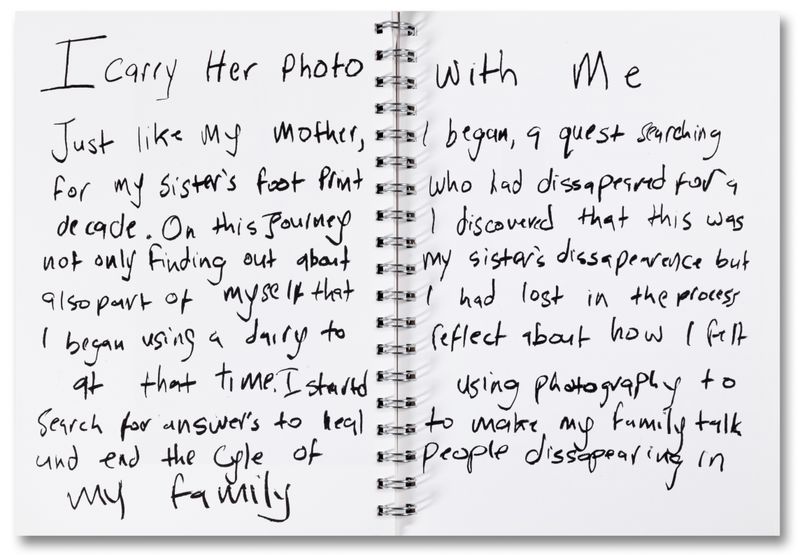 I Carry Her Photo With Me
Just like My Mother, I began, a quest searching
for my sister's foot print who had dissapeared for a
decade. On this Journey I discovered that this was
not only finding out about my sister's dissapearence but
also part of myself that I had lost in the process
I began using a dairy to reflect about how I felt
at that time. I started using photography to
search for answer's to heal to make my family talk
and end the Cyle of people dissapearing in
my family